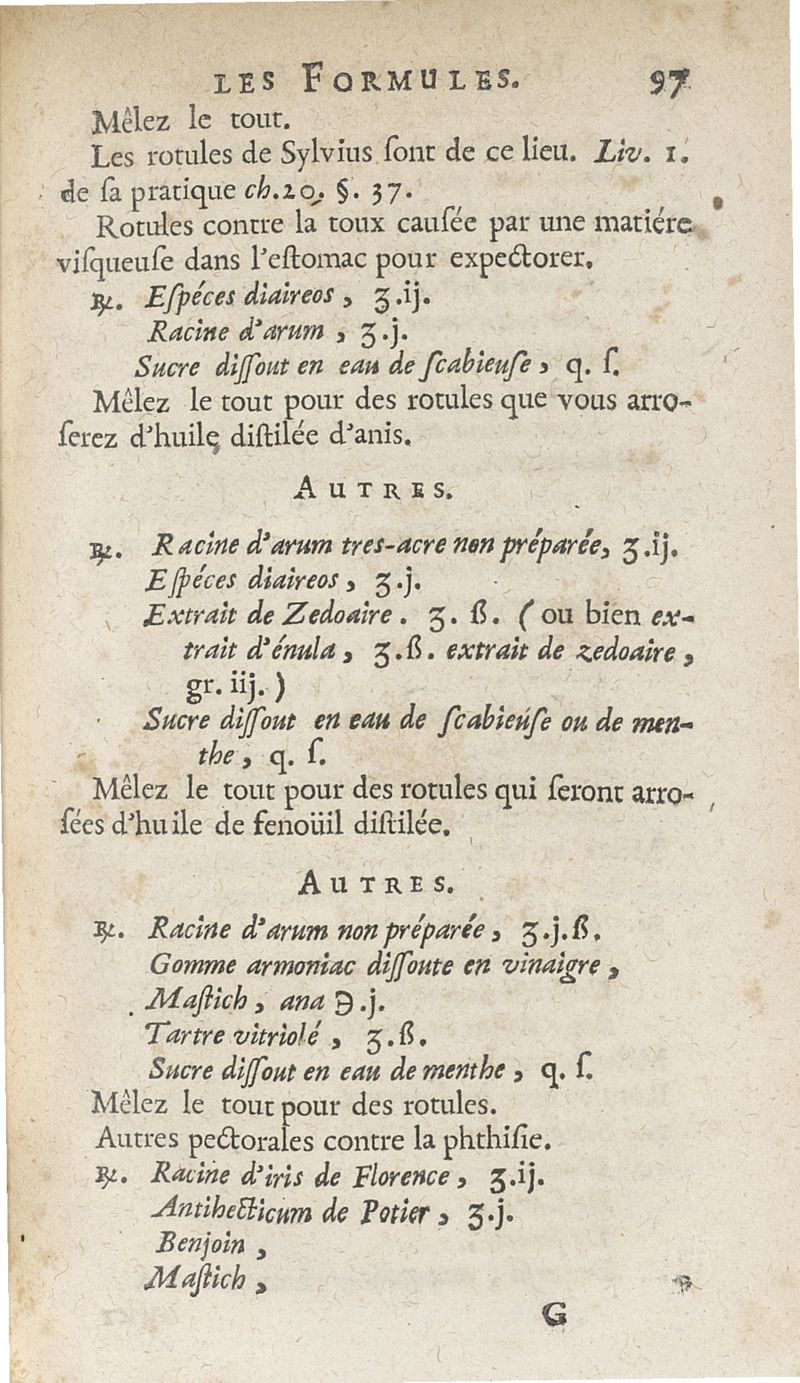 LES FORMULES. 97
Mêlez le tout.
Les rotules de Sylvius ſont de ce lieu. Liv. 1.
de ſa pratique ch. 20. §. 37.
Rotules contre la toux cauſée par une matiére
viſqueuſe dans l'eſtomac pour expectorer.
℞. Eſpéces diaireos, ʒ.ij.
Racine d'arum, ʒ.j.
Sucre diſſout en eau de ſcabieuſe, q. ſ.
Mêlez le tout pour des rotules que vous arro-
ſerez d'huile diſtilée d'anis.
AUTRES.
℞. Racine d'arum tres-acre non préparée, ʒ.ij.
Eſpéces diaireos, ʒ.j.
Extrait de Zedoaire. ʒ. ß. (ou bien ex-
trait d'énula, ʒ.ß. extrait de zedoaire,
gr. iij.)
Sucre diſſout en eau de ſcabieuſe ou de men-
the, q. ſ.
Mêlez le tout pour des rotules qui ſeront arro-
ſées d'huile de fenoüil diſtilée.
AUTRES.
℞. Racine d'arum non préparée, ʒ.j.ß.
Gomme armoniac diſſoute en vinaigre,
Maſtich, ana ℈.j.
Tartre vitriolé, ʒ.ß.
Sucre diſſout en eau de menthe, q. ſ.
Mêlez le tout pour des rotules.
Autres pectorales contre la phthiſie.
℞. Racine d'iris de Florence, ʒ.ij.
Antihecticum de Potier, ʒ.j.
Benjoin,
Maſtich,
G